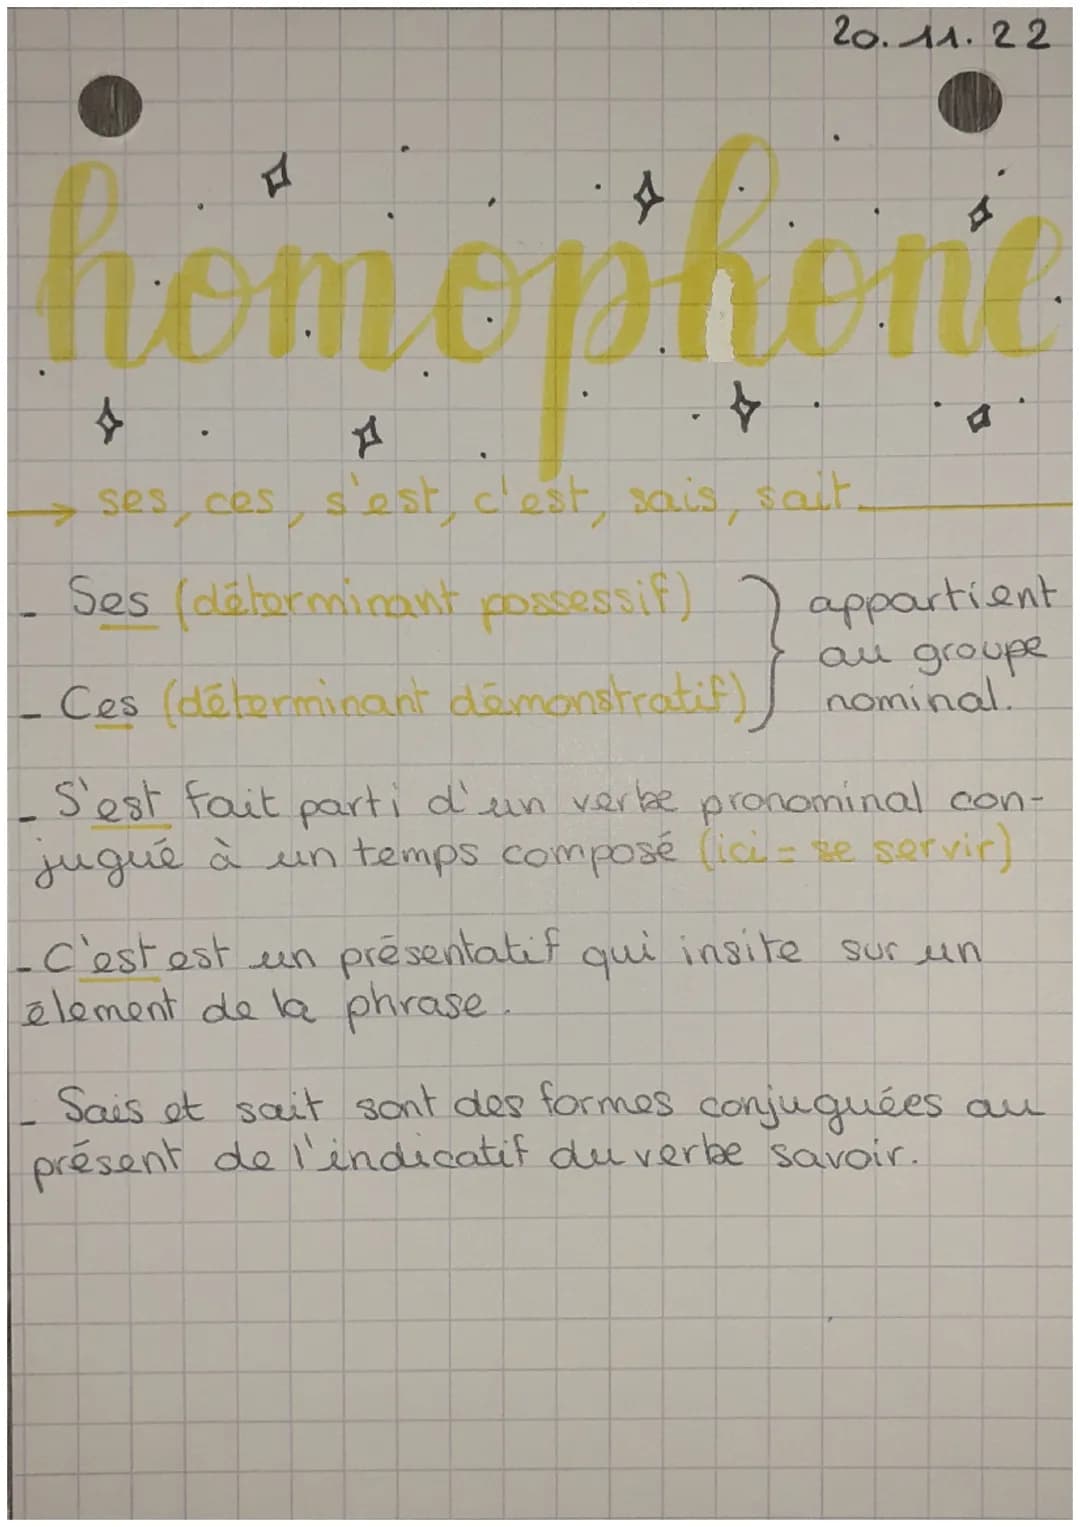 20.11.22
homophone
→ ses, ces, s'est, c'est, sais, sait.
- Ses (déterminant possessif)
- Ces (déterminant démonstratif)
} appartient
au groupe
nominal.
- S'est fait parti d'un verbe pronominal con-
jugué à un temps composé (ici = se servir)
- C'est est un présentatif qui insite sur un
élement de la phrase.
- Sais et sait sont des formes conjuguées au
présent de l'indicatif du verbe savoir.